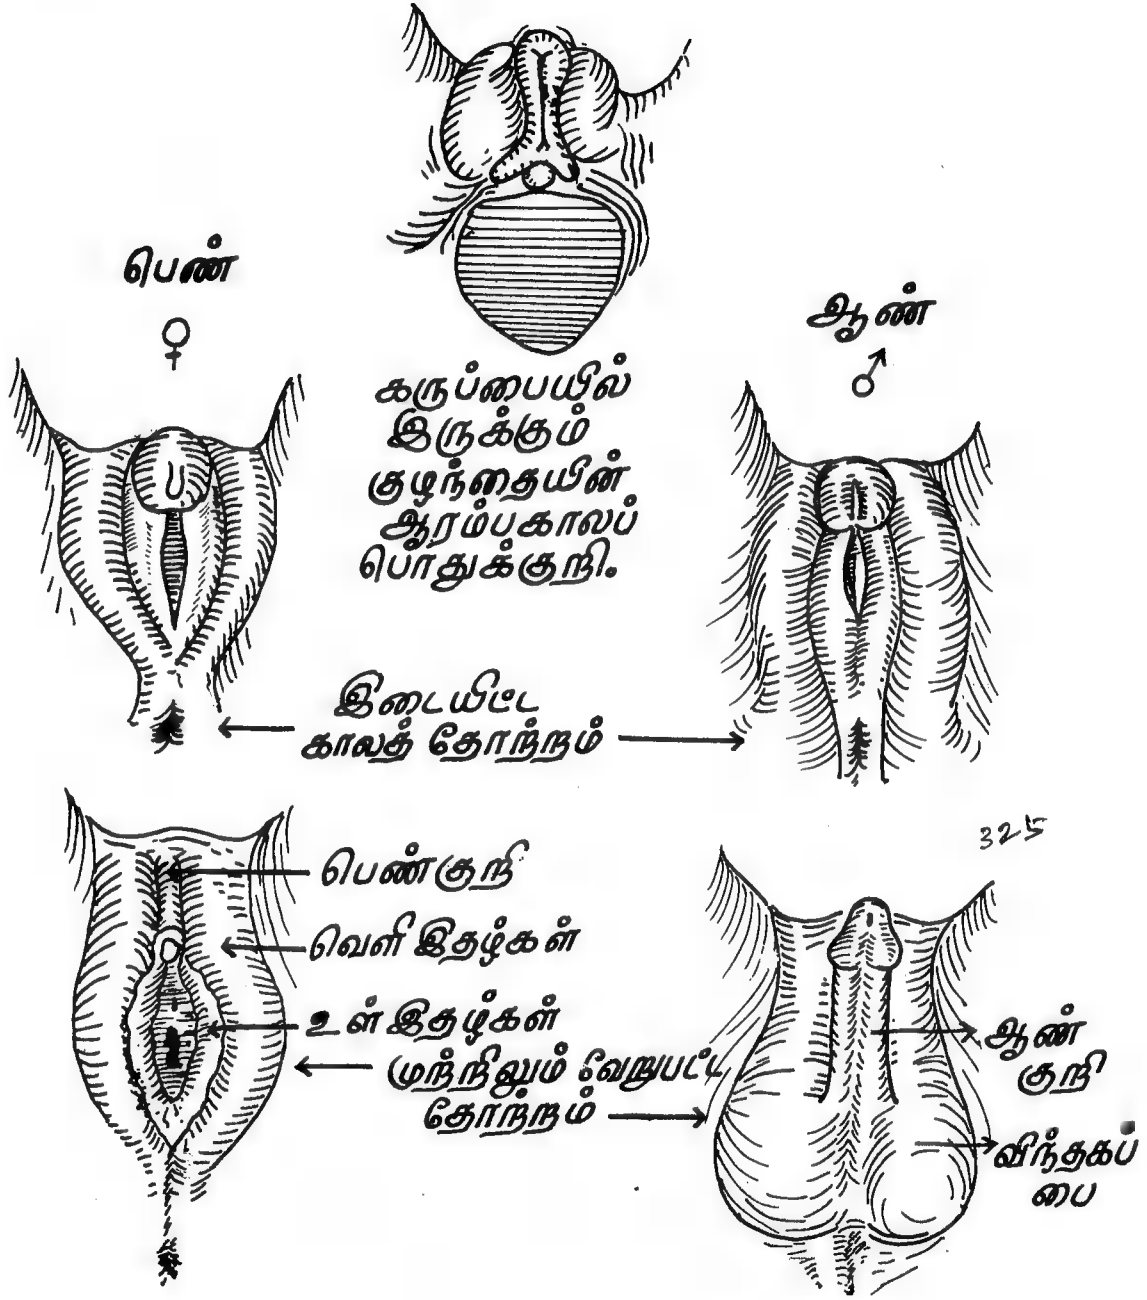 பெண்
ஆண்
கருப்பையில்
இருக்கும்
குழந்தையின்
ஆரம்பகாலப்
பொதுக்குறி.
இடையிட்ட
காலத் தோற்றம்
325
பெண்குறி
வெளி இதழ்கள்
உள் இதழ்கள்
முற்றிலும் வேறுபட்ட
தோற்றம்
ஆண்
குறி
விந்தகப்
பை